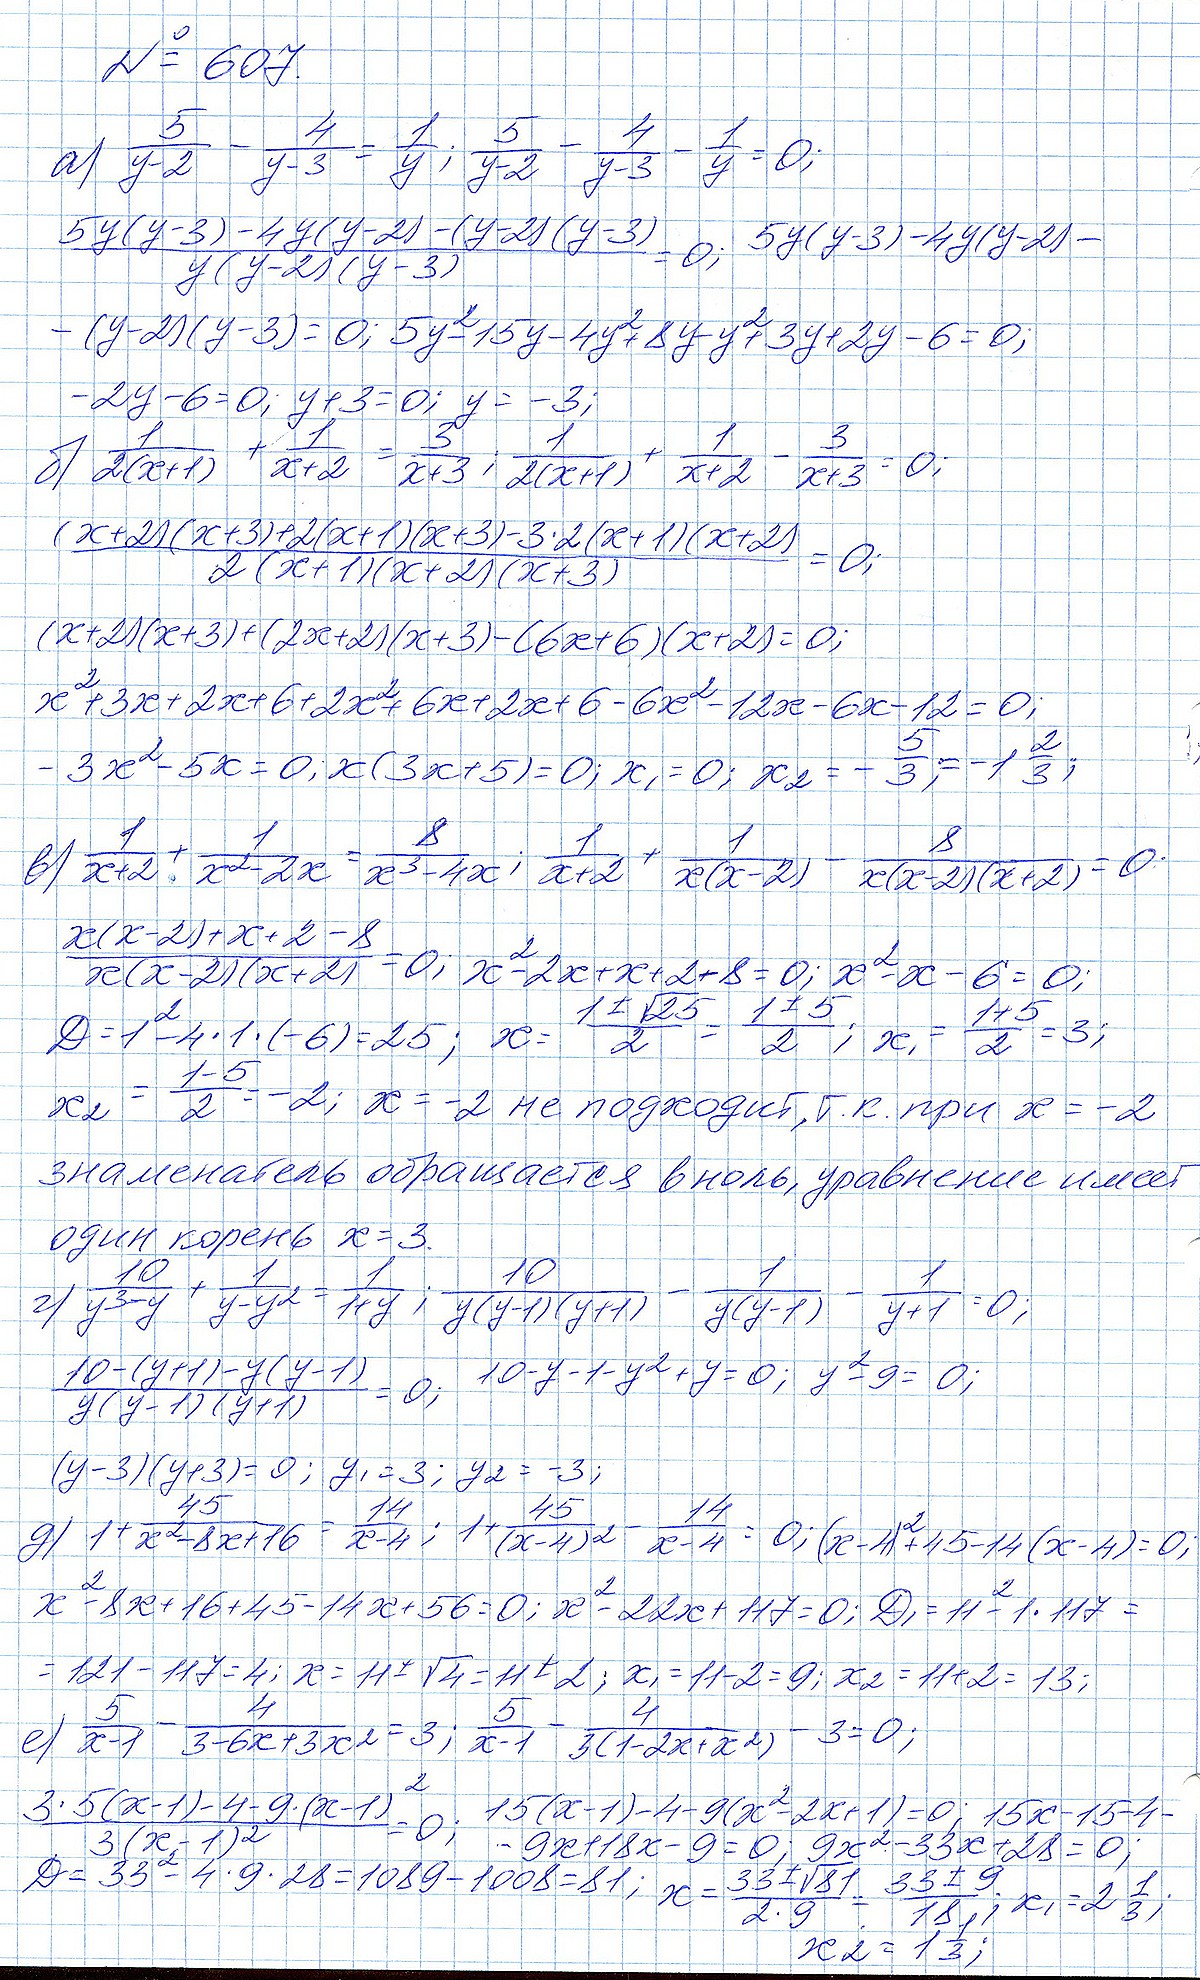 № 607.
а) 5/(y-2) - 4/(y-3) = 1/y; 5/(y-2) - 4/(y-3) - 1/y = 0;
(5y(y-3)-4y(y-2)-(y-2)(y-3))/(y(y-2)(y-3)) = 0; 5y(y-3)-4y(y-2)-
-(y-2)(y-3)=0; 5y²-15y-4y²+8y-y²+3y+2y-6=0;
-2y-6=0; y+3=0; y=-3;
б) 1/(2(x+1)) + 1/(x+2) = 3/(x+3); 1/(2(x+1)) + 1/(x+2) - 3/(x+3) = 0;
((x+2)(x+3)+2(x+1)(x+3)-3·2(x+1)(x+2))/(2(x+1)(x+2)(x+3)) = 0;
(x+2)(x+3)+(2x+2)(x+3)-(6x+6)(x+2)=0;
x²+3x+2x+6+2x²+6x+2x+6-6x²-12x-6x-12=0;
-3x²-5x=0; x(3x+5)=0; x₁=0; x₂=-5/3;=-1 2/3;
в) 1/(x+2) + 1/(x²-2x) = 8/(x³-4x); 1/(x+2) + 1/(x(x-2)) - 8/(x(x-2)(x+2)) = 0.
(x(x-2)+x+2-8)/(x(x-2)(x+2)) = 0; x²-2x+x+2+8=0; x²-x-6=0;
D=1²-4·1·(-6)=25; x=(1±√25)/2=(1±5)/2; x₁=(1+5)/2=3;
x₂=(1-5)/2=-2; x=-2 не подходит, т.к. при x=-2
знаменатель обращается в ноль, уравнение имеет
один корень x=3.
г) 10/(y³-y) + 1/(y-y²) = 1/(1+y); 10/(y(y-1)(y+1)) - 1/(y(y-1)) - 1/(y+1) = 0;
(10-(y+1)-y(y-1))/(y(y-1)(y+1)) = 0; 10-y-1-y²+y=0; y²-9=0;
(y-3)(y+3)=0; y₁=3; y₂=-3;
д) 1+45/(x²-8x+16)=14/(x-4); 1+45/(x-4)²-14/(x-4)=0; (x-4)²+45-14(x-4)=0;
x²-8x+16+45-14x+56=0; x²-22x+117=0; D₁=11²-1·117=
=121-117=4; x=11±√4=11±2; x₁=11-2=9; x₂=11+2=13;
е) 5/(x-1) - 4/(3-6x+3x²) = 3; 5/(x-1) - 4/(3(1-2x+x²)) - 3=0;
(3·5(x-1)-4-9·(x-1)²)/(3(x-1)²) = 0; 15(x-1)-4-9(x²-2x+1)=0; 15x-15-4-
-9x+18x-9=0; 9x²-33x+28=0;
D=33²-4·9·28=1089-1008=81; x=(33±√81)/(2·9)=(33±9)/18; x₁=2 1/3;
x₂=1 1/3;